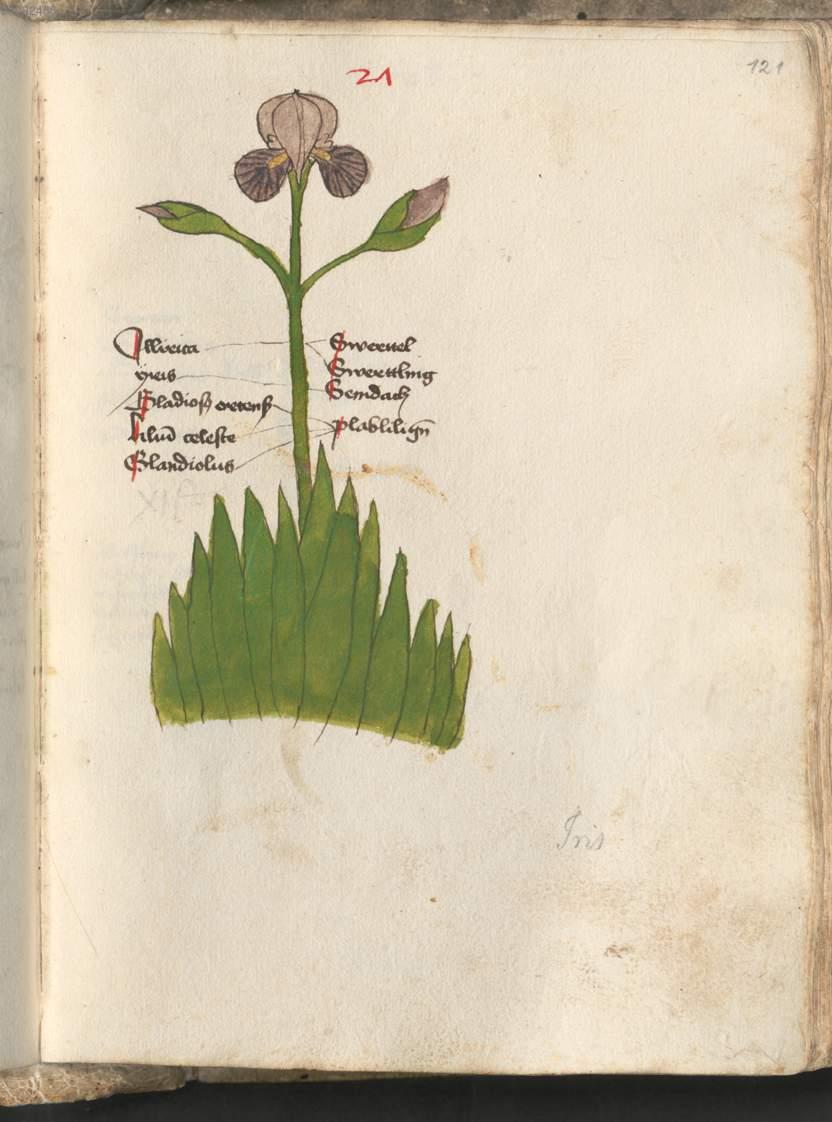 21
121
Illirica
yreis
Gladiolꝰ cretensꝭ
Liliū celeste
Glandiolus
Swertel
Swerttling
Gemdach
plabliligñ
Iris